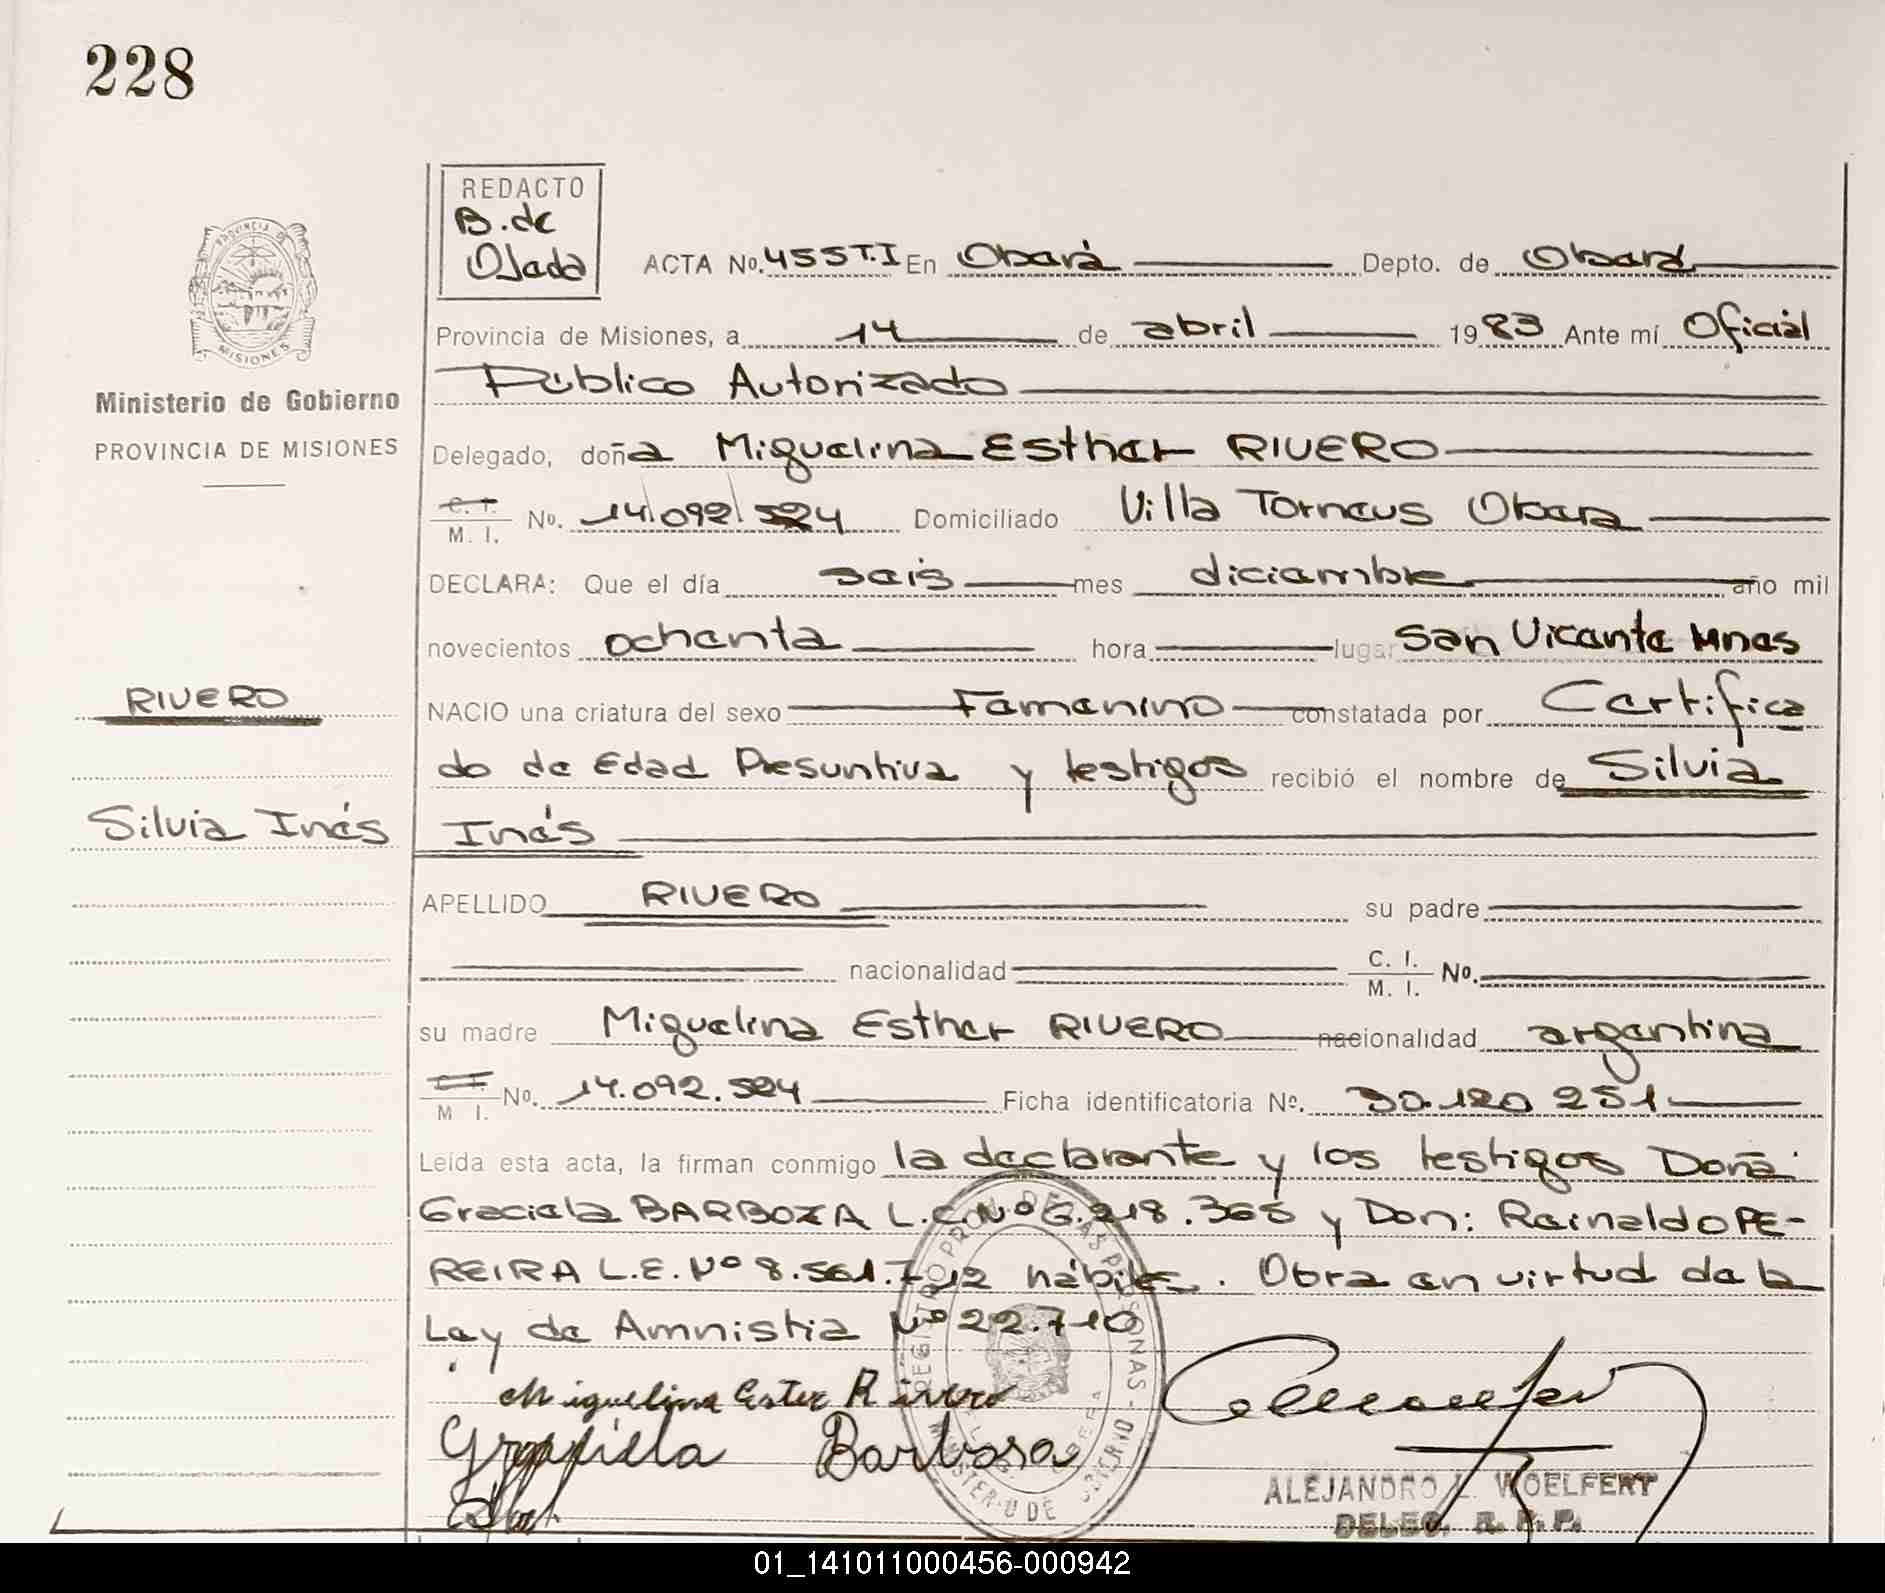 228
REDACTO
B. de
Ojada
PROVINCIA DE
MISIONES
Ministerio de Gobierno
PROVINCIA DE MISIONES
ACTA No. 455 T.I En Oberá Depto. de Oberá
Provincia de Misiones, a 14 de abril 1983 Ante mí Oficial
Público Autorizado
Delegado, doña Miguelina Esther RIVERO
C. I.
M. I. No. 14.092.524 Domiciliado Villa Torneus Obera
DECLARA: Que el día seis mes diciembre año mil
novecientos ochenta hora lugar San Vicente Mnes
RIVERO
NACIO una criatura del sexo Femenino constatada por Certifica
do de Edad Presuntiva y testigos recibió el nombre de Silvia
Silvia Inés
Inés
APELLIDO RIVERO su padre
nacionalidad C. I.
M. I. No.
su madre Miguelina Esther RIVERO nacionalidad argentina
C. I.
M I. No. 14.092.524 Ficha identificatoria No. 30.120 251
Leída esta acta, la firman conmigo la declarante y los testigos Doña
Graciela BARBOZA L.C. Nº 6.218.365 y Don: Reinaldo PE-
REIRA L.E. Nº 8.561.712 hábiles. Obra en virtud de la
Ley de Amnistia Nº 22.710
Miguelina Ester Rivero
Barbosa
ALEJANDRO L. WOELFERT
DELEG. R. P. P.
01_141011000456-000942